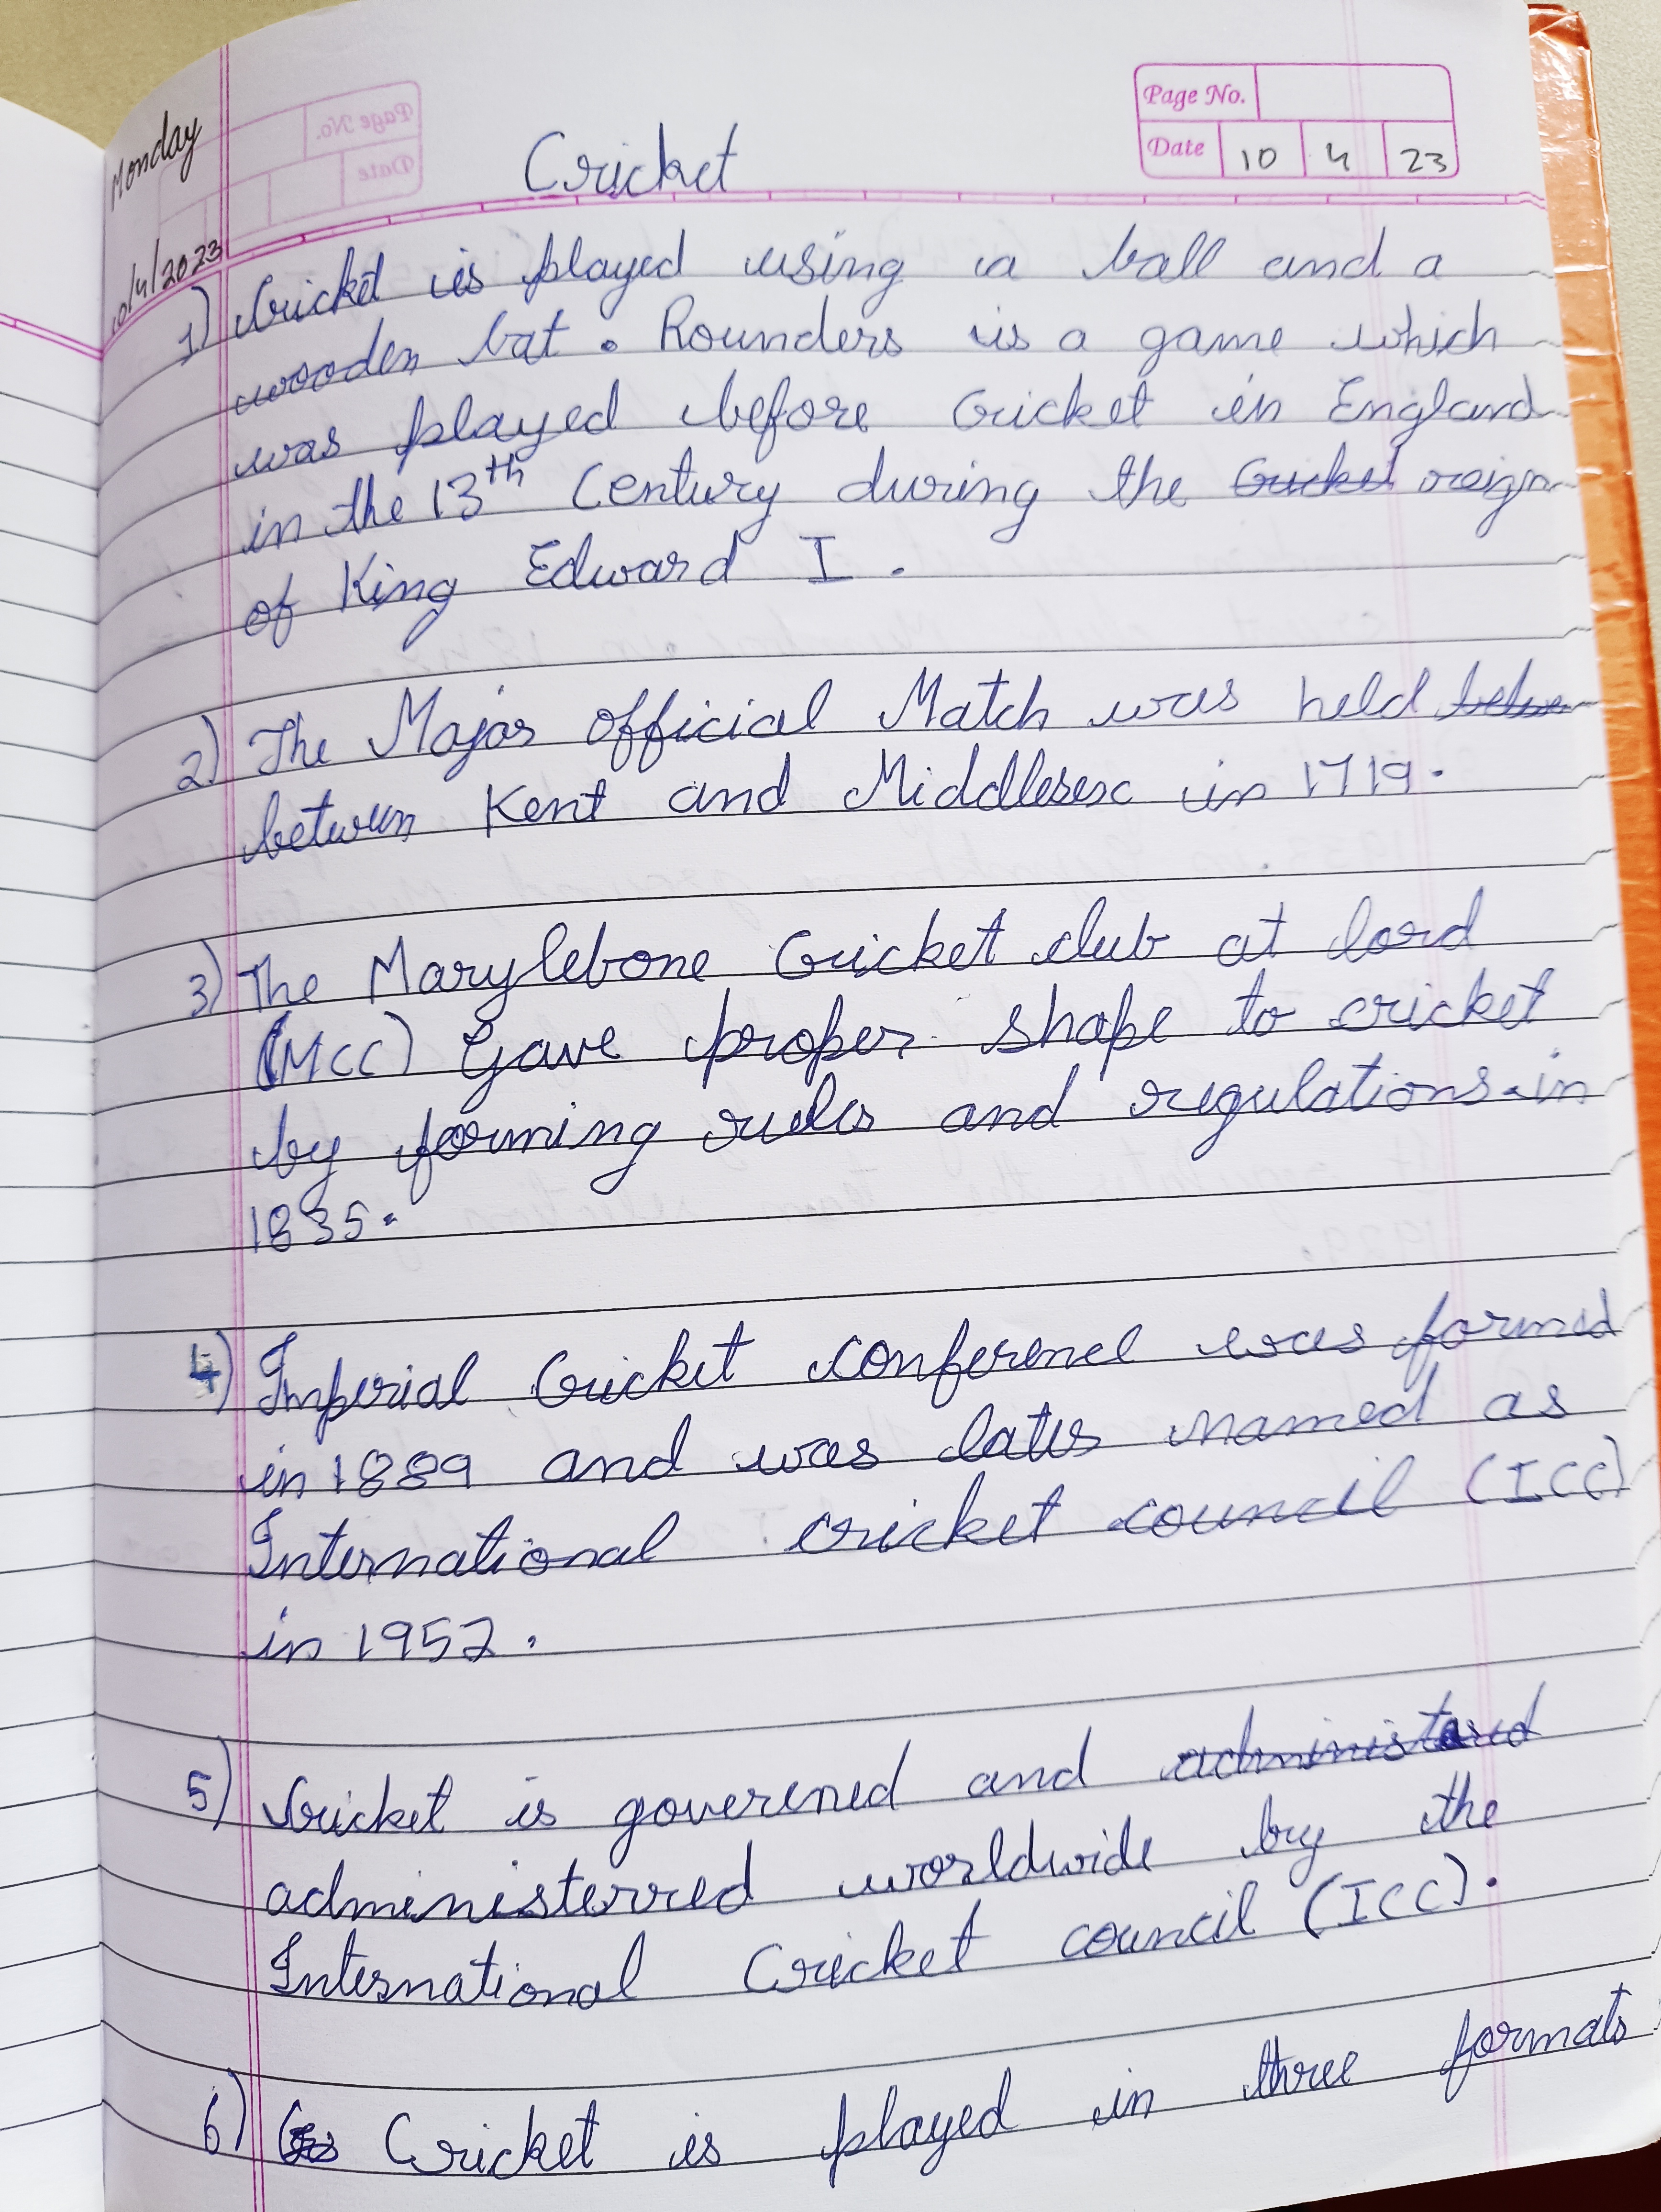 Monday
10/4/2023
Page No.
Date 10 4 23
Cricket
1) Cricket is played using a ball and a
wooden bat. Rounders is a game which
was played before Cricket in England
in the 13th Century during the Cricket reign
of King Edward I.
2) The Major official Match was held
between Kent and Middlesex in 1719.
3) The Marylebone Cricket club at lord
(MCC) Gave proper shape to cricket
by forming rules and regulations in
1835.
4) Imperial Cricket conference was formed
in 1889 and was later named as
International cricket council (ICC)
in 1952.
5) Cricket is goverened and administered
administerred worldwide by the
International Cricket council (ICC).
6) Cricket is played in three formats